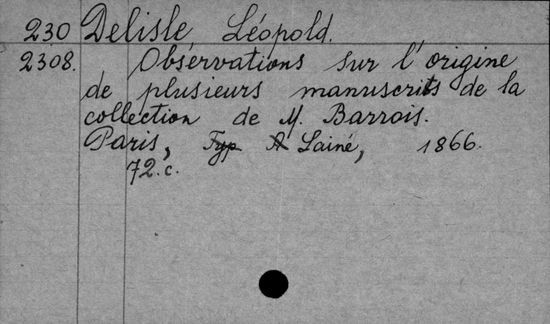 230 Delisle Léopold.
2308. Obsérvations sur l'origine
de plusieurs manuscrits de la
collection de M. Barrois.
Paris, Typ A Lainé, 1866.
72. c.